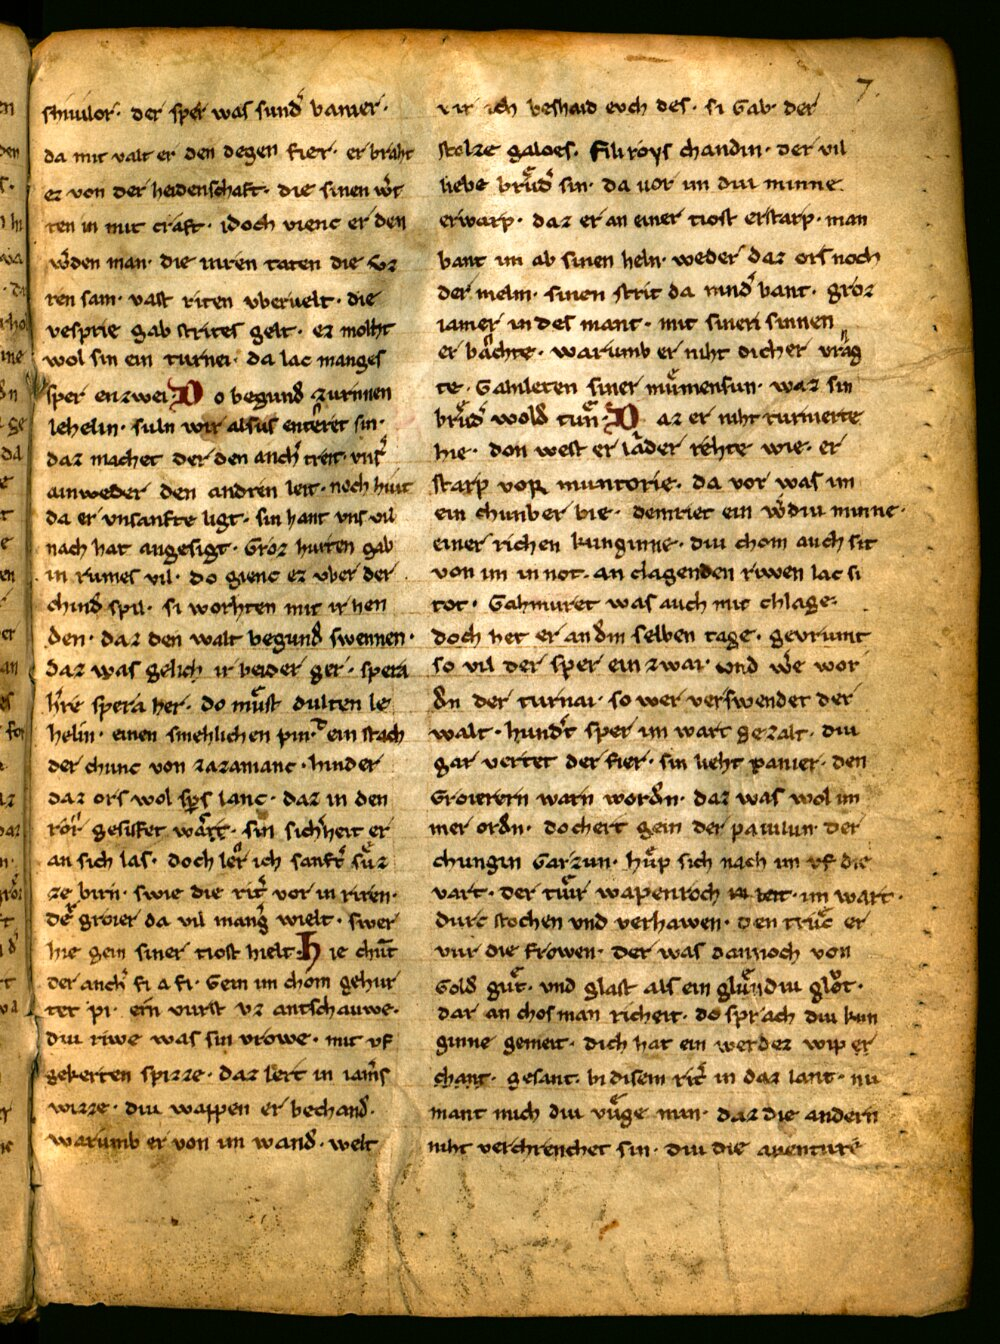 7.
shiuilor· der sper was sunder banier·
da mit valt er den degen fier· er braht
ez von der heidenschaft· die sinen wer
ten in mit craft· idoch vienc er den
werden man· die inren taten die vz
ren sam· vast riten vberuelt· die
vesprie gab strites gelt· ez moht
wol sin ein turnei· da lac manges
sper enzwei· Do begund zurnnen
lehelin· suln wir alsus enteret sin·
daz machet der den ancher treit· vnser
ainweder den andren leit· noch hiut
da er vnsanfte ligt· sin hant vns vil
nach hat angesigt· Groz hurten gab
in rumes vil· do gienc ez vber der
chind spil· si worhten mit ir hen
den· daz den walt begund swennen·
Daz was gelich ir beider ger· spera
herre spera her· do muͤst dulten le
helin· einen smehlichen pin· ein stach
der chunc von zazamanc· hinder
daz ors wol spers lanc· daz in den
ror gesiket wart· sin sicherheit er
an sich las· doch lert ich sanfter suͤz
ze birn· swie die ritter vor in riten·
der groier da vil manger wielt· swer
hie gein siner tiost hielt Hie chumt
der ancher fi a fi· Gein im chom gehur
tet pi· ein vurst vz antschauwe·
diu riwe was sin vrowe· mit vf
gekerten spizze· daz lert in iamers
wizze· diu wappen er bechand·
warumb er von im wand· welt
vir ich beshaid evch des· si Gab der
stolze galoes. Filiroys chandin· der vil
liebe bruͤder sin· da vor im diu minne
erwarp· daz er an einer tiost erstarp· man
bant im ab sinen helm· weder daz ors noch
der melm· sinen strit da nind bant· groz
iamer in des mant· mit sinen sinnen
er bahte· warumb er niht dicher vrag
te· Gahileten siner muͤmensun· waz sin
bruͤder wold tun· Daz er niht turnierte
hie· don west er lader rehte wie· er
starp vor muntorie· da vor was im
ein chunber bie· demriet ein werdiu minne·
einer richen kunginne· diu chom auch sit
von im in not· an clagenden riwen lac si
tot· Gahmuret was auch mit chlage·
doch het er an dem selben tage· gevriunt
so vil der sper ein zwar· und were wor
den der turnai· so wer verswendet der
walt· hundert sper im wart gezalt· diu
gar vertet der fier· sin lieht panier· den
Groierern warn worden· daz was wol im
mer orden· do chert gein der paiulun der
chungin Garzun· huͤp sich nach im vf die
vart· der tiur wapenroch im reit· im wart·
durc stochen und verhawen· den truͤc er
vur die frowen· der was dannoch von
Gold guͤt· vnd glast als ein gluͤndiu gloͤt·
dar an chos man richeit· do sprach diu kun
ginne gemeit· dich hat ein werdez wip er
chant· gesant· bi disem ritter in daz lant· nu
mant mich diu vuͤge min· daz die andern
niht verchrenchet sin· diu die auenture